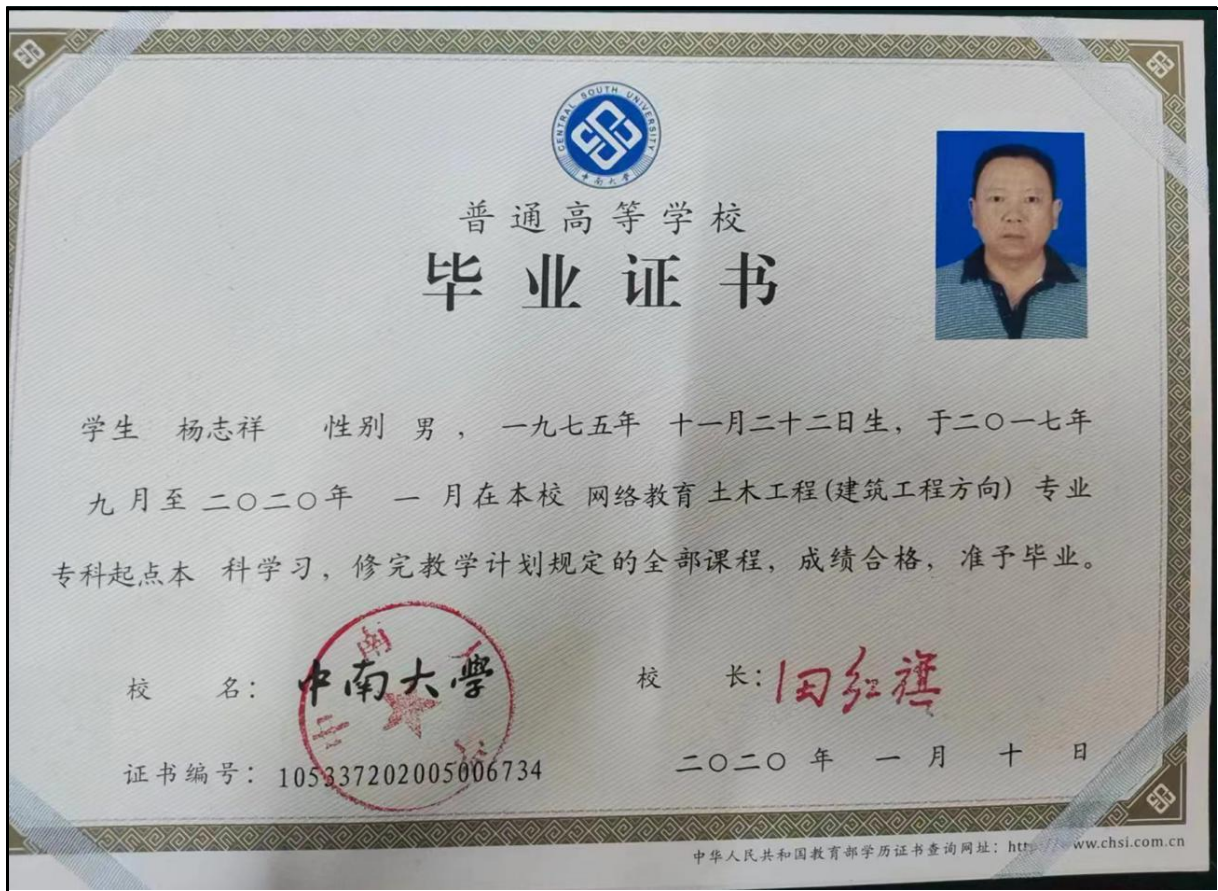 CENTRAL SOUTH UNIVERSITY
中南大学
普通高等学校
毕业证书
学生 杨志祥 性别 男，一九七五年 十一月二十二日生，于二〇一七年
九月至二〇二〇年 一月在本校 网络教育 土木工程(建筑工程方向) 专业
专科起点本 科学习，修完教学计划规定的全部课程，成绩合格，准予毕业。
校 名：中南大學
校 长：田红旗
证书编号：105337202005006734
二〇二〇年 一月 十 日
中华人民共和国教育部学历证书查询网址：http://www.chsi.com.cn